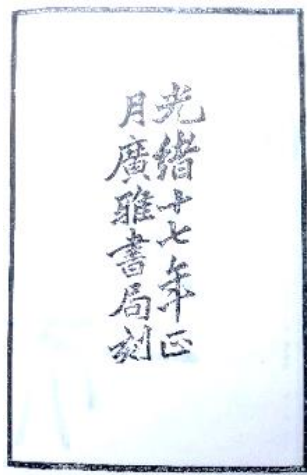 光緒十七年正
月廣雅書局刻